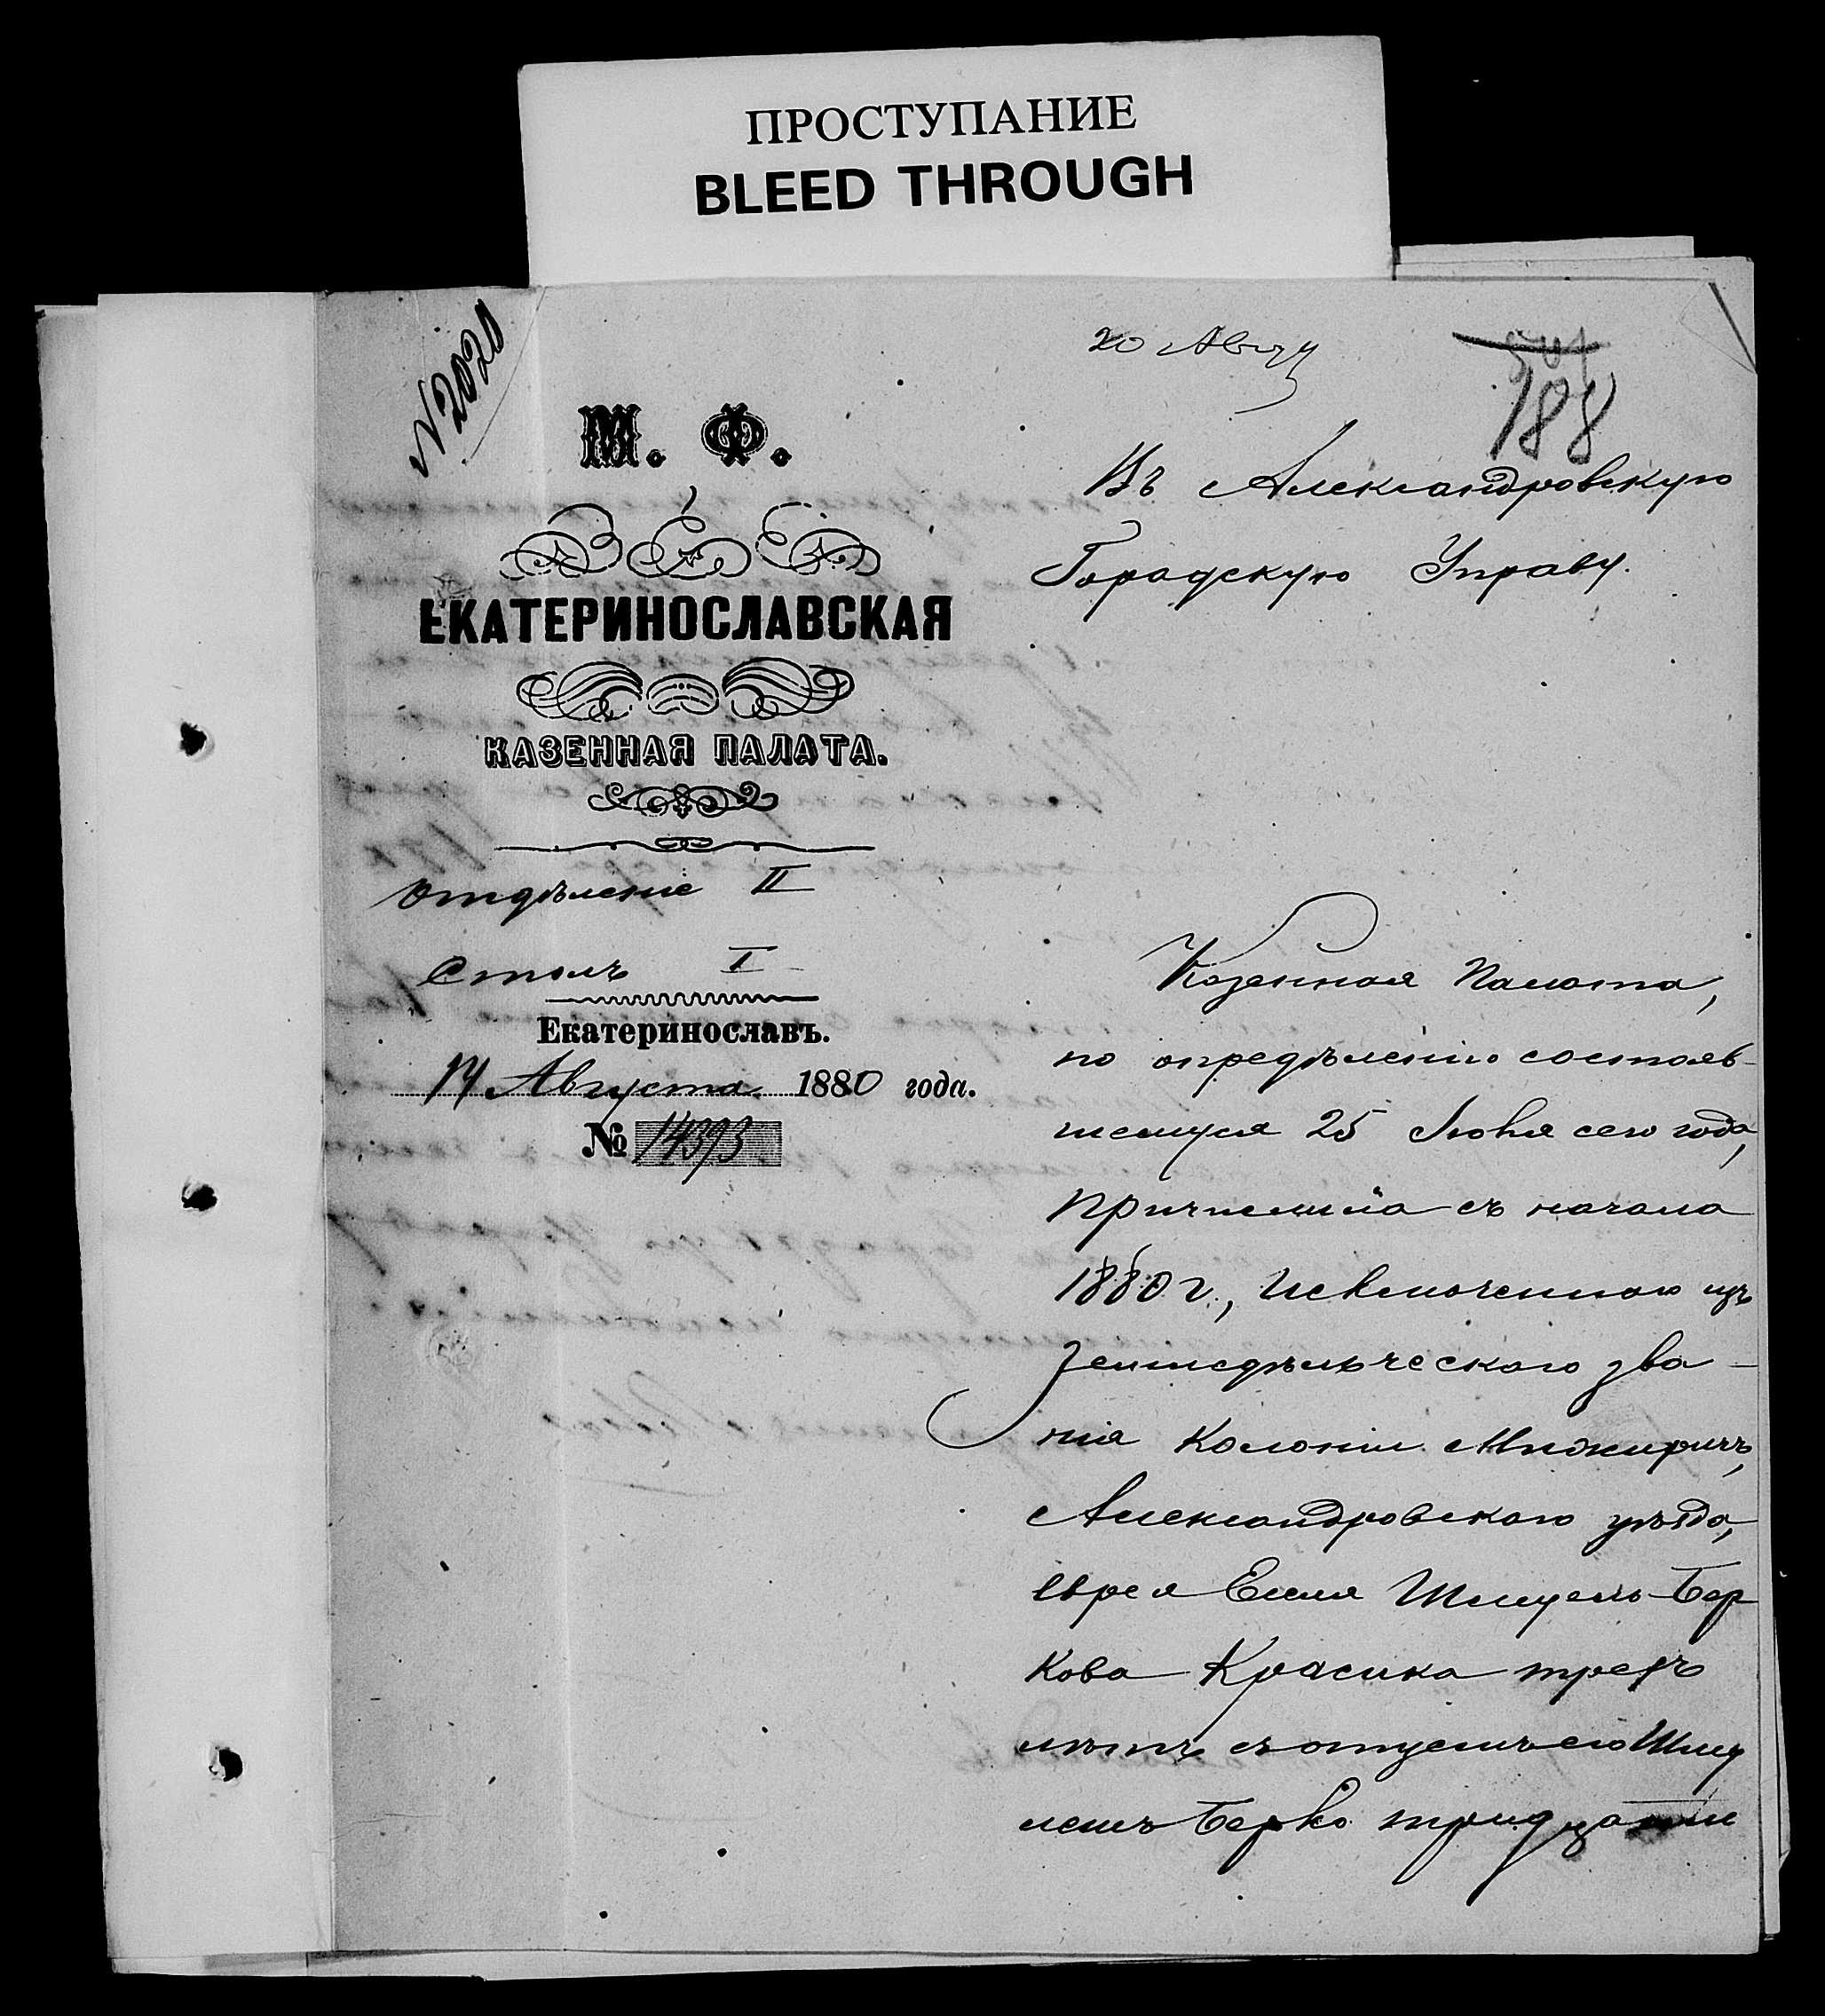 ПРОСТУПАНИЕ
BLEED THROUGH
N 2020
20 Авгу
188
М. Ф.
ЕКАТЕРИНОСЛАВСКАЯ
КАЗЕННАЯ ПАЛАТА.
Отдѣленіе II
Столъ I
Екатеринославъ.
14 Августа 1880 года.
№ 14393
Въ Александровскую
Городскую Управу.
Казенная Палата,
по опредѣленію состояв-
шемуся 25 Іюня сего года,
причислила съ начала
1880 г., исключеннаго изъ
земледѣльческаго зва-
нія колоніи Межиричъ,
Александровскаго уѣзда,
еврея Еселя Шмуель-Бер
кова Красика трехъ
лѣтъ съ отцемъ его Шму
лемъ Берко тридцати